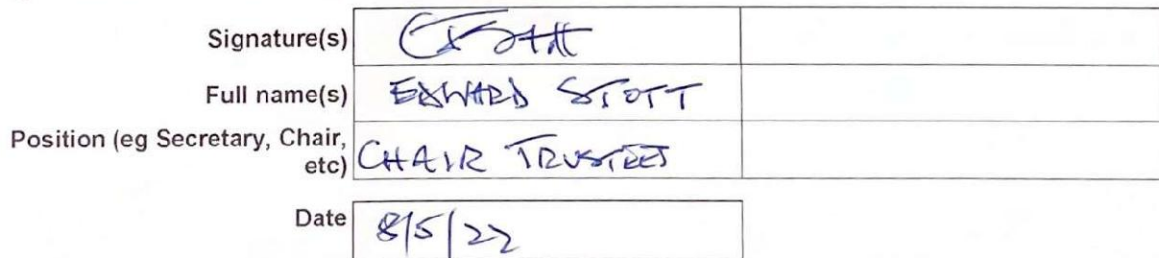 Signature(s)
Full name(s) EDWARD STOTT
Position (eg Secretary, Chair,
etc) CHAIR TRUSTEES
Date 8/5/22